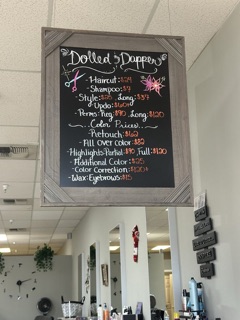 Dolled & Dapper
-Haircut: $24
-Shampoo: $7
Style: $25 Long: $34
Updo: $60+
Perms Reg: $90 Long: $120
Color Prices
Retouch: $62
-Fill Over Color: $82
-Highlights-Partial: $90 Full: $120
-Additional Color: $25
-Color Correction: $120+
-Wax: Eyebrows: $15